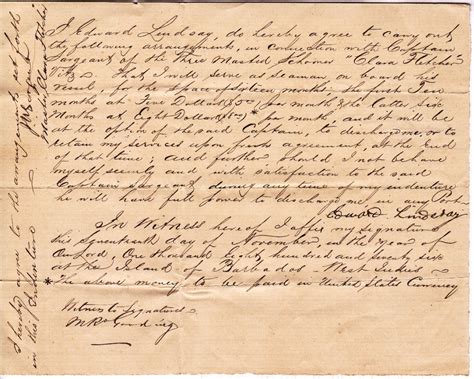 I Edward Lindsay, do hereby agree to carry out
the following arrangement, in connection with Captain
Sargeant of the Three Masted Schooner "Clara Fletcher"
Viz That I will serve as Seaman, on board his
Vessel, for the space of Sixteen months: the first Ten
months at Five Dollars per month & the latter Six
Months at Eight Dollars * per month, and it will be
at the option of the said Captain, to discharge me, or to
retain my services upon fresh agreement, at the End
of that time; and further should I not behave
myself and with satisfaction to the said
Captain Sargeant, during any time of my indenture
he will have full power to discharge me, in any Port
Edward Lindsay
In Witness here of I affix my signature
this Seventeenth day of November, in the Year of
Our Lord, One thousand Eight hundred and seventy six
at the Island of Barbados - West Indies
* The above money to be paid in United States Currency
Witness to Signatures
I hereby agree to the arrangement set forth
in this Indenture
Master Clara Fletcher